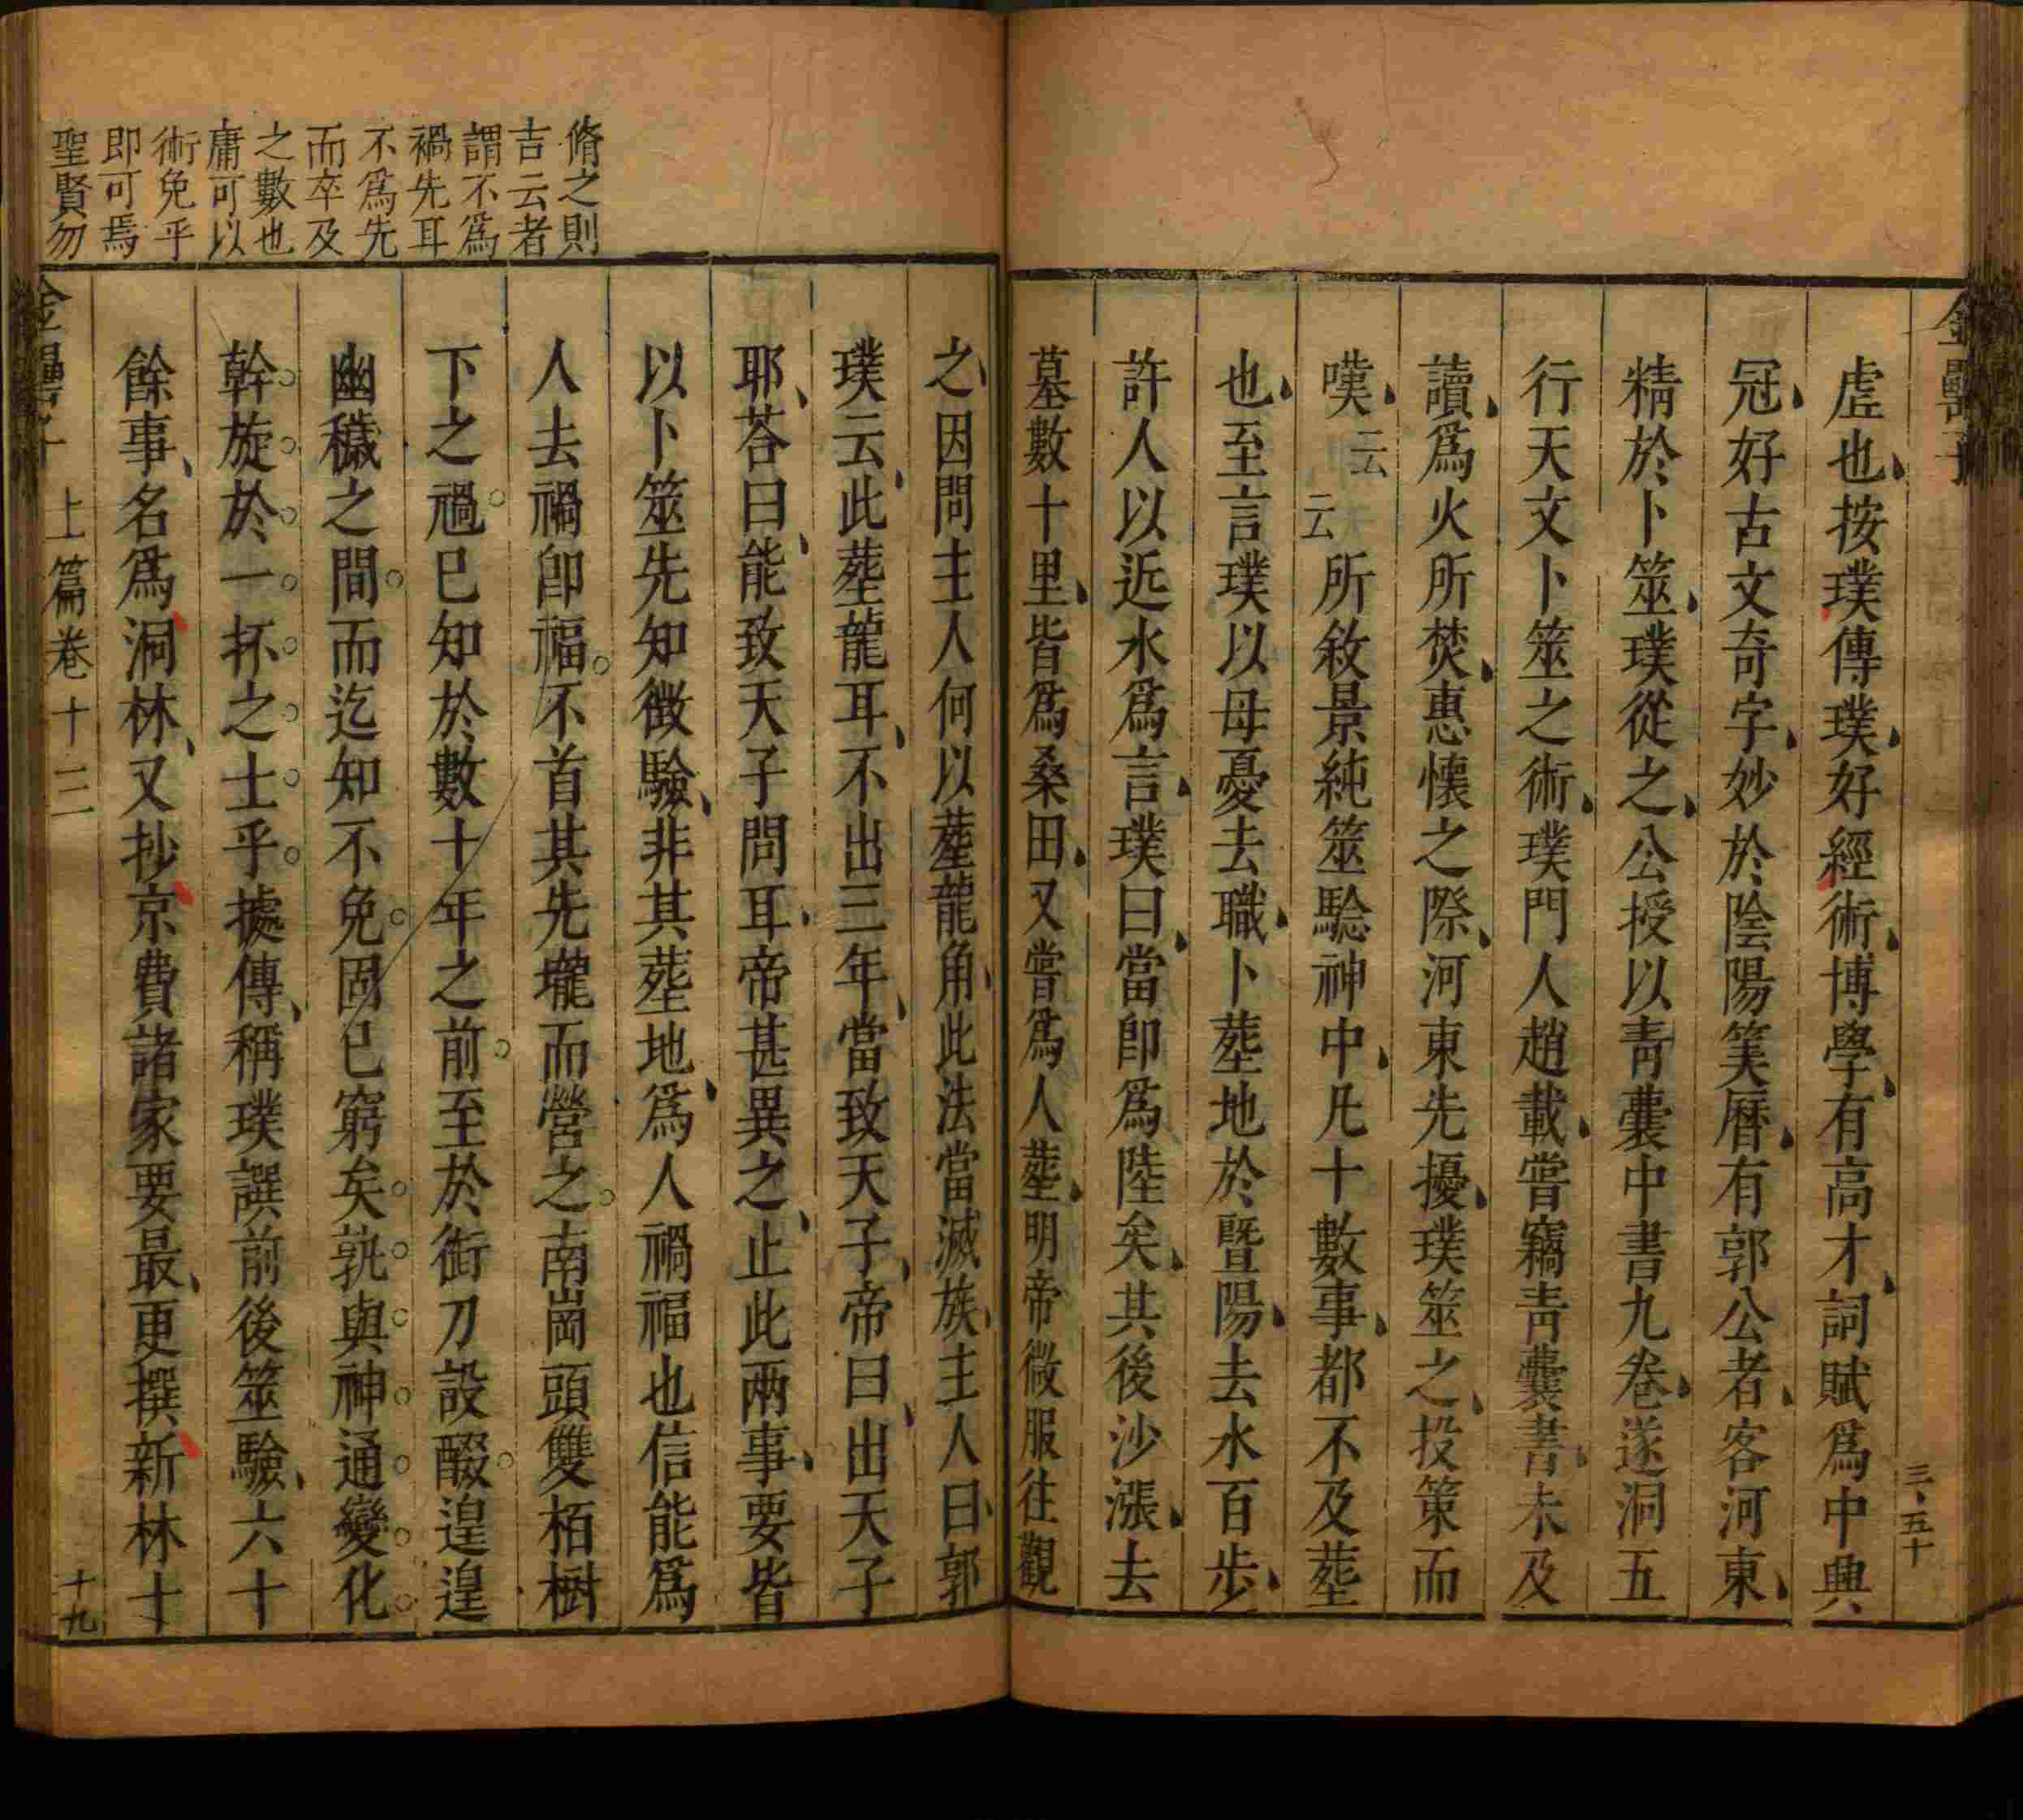 虛也按璞傳璞好經術博學有高才詞賦爲中興
冠好古文奇字妙於陰陽筭曆有郭公者客河東
精於卜筮璞從之公授以青囊中書九卷遂洞五
行天文卜筮之術璞門人趙載嘗竊青囊書未及
讀爲火所焚惠懷之際河東先擾璞筮之投策而
嘆云云所敘景純筮驗神中凡十數事都不及塟
也至言璞以母憂去職卜塟地於暨陽去水百步
許人以近水爲言璞曰當卽爲陸矣其後沙漲去
墓數十里皆爲桑田又嘗爲人塟明帝微服往觀
三五十
脩之則
吉云者
謂不爲
禍先耳
不爲先
而卒及
之數也
庸可以
術免乎
即可焉
聖賢勿
之因問主人何以塟龍角此法當滅族主人曰郭
璞云此塟龍耳不出三年當致天子帝曰出天子
耶荅曰能致天子問耳帝甚異之止此兩事要皆
以卜筮先知徵驗非其塟地爲人禍福也信能爲
人去禍卽福不首其先壠而營之南崗頭雙栢樹
下之禍巳知於數十年之前至於銜刀設醊遑遑
幽穢之間而迄知不免固巳窮矣孰與神通變化
幹旋於一抔之士乎據傳稱璞譔前後筮驗六十
餘事名爲洞林又抄京費諸家要最更撰新林十
金罍子 上篇卷十三 十九